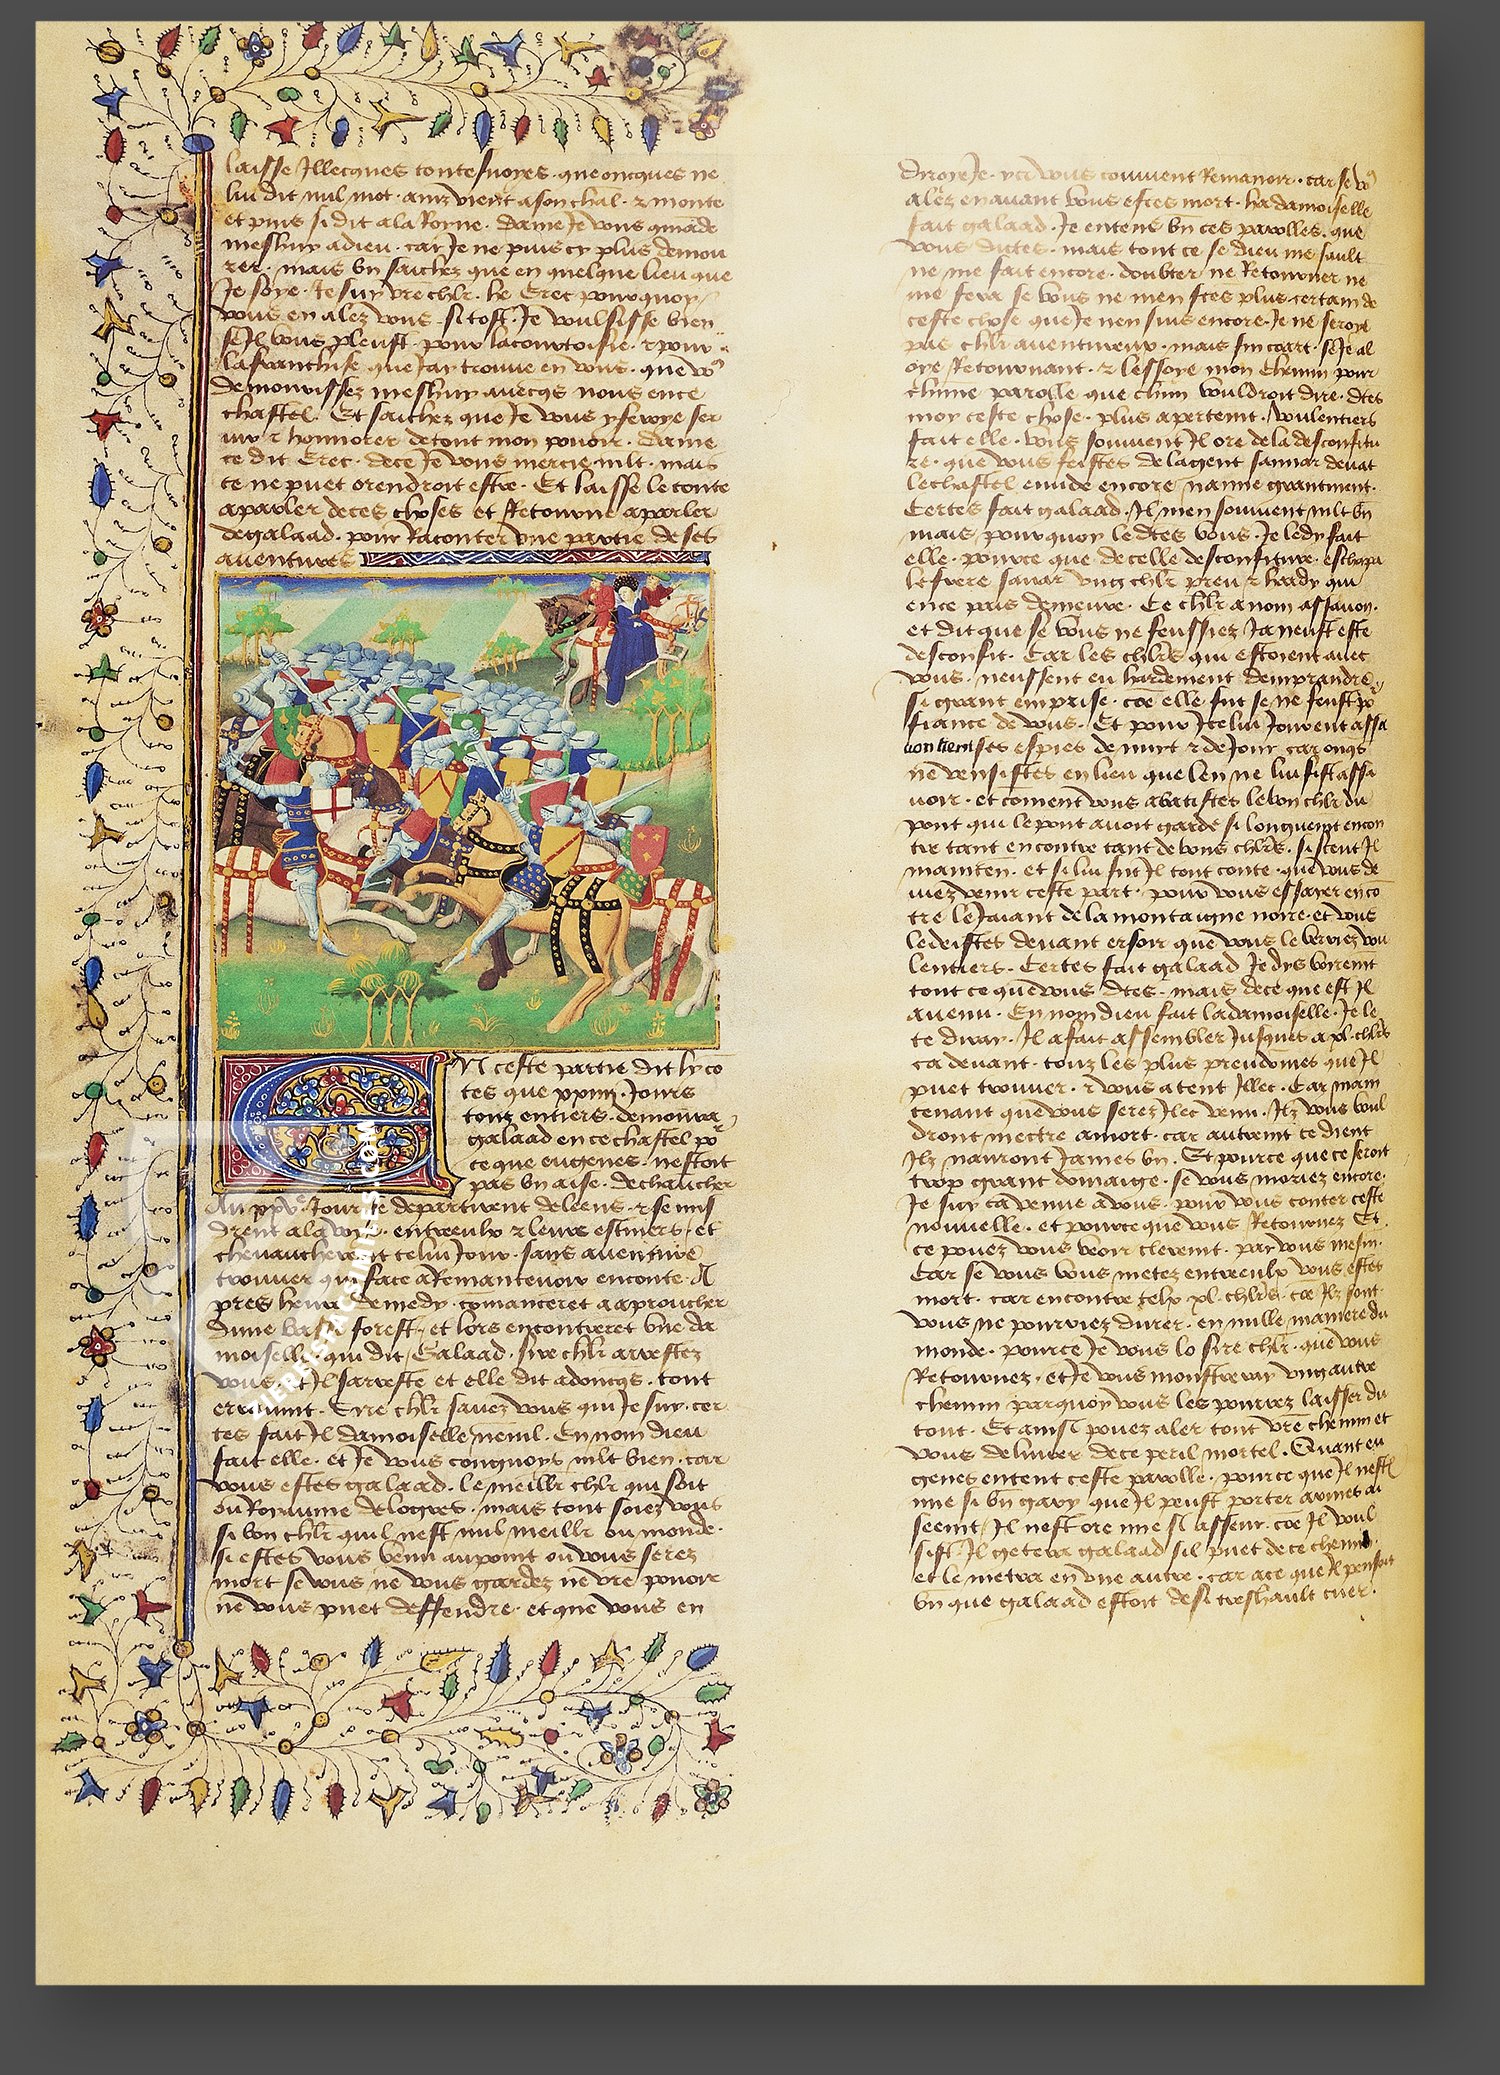 laisse Jllecques toutesuoyes. que oncques ne
lui dit nul mot. ainz vient a son chal. & monte
et puis si dit ala Royne. dame Je vous qmāde
meshuy adieu. car Je ne puis cy plus demou
rer. mais bn saichez que en quelque lieu que
Je soye. Je suy vrē chlr. he Erec pourquoy
vous en alez vous si tost. Je voulsisse bien
sJl vous pleust. pour la courtoisie. & pour
la franchise que Jay trouue en vous. que vo9
demourissez meshuy auecqs nous en ce
chastel. Et saichez que Je vous y feroye ser
uir & honnorer de tout mon pouoir. dame
ce dit Erec. de ce Je vous mercie mlt. mais
ce ne puet orendroit estre. Et laisse le conte
a parler de ces choses et Retourne a parler
de galaad. pour Raconter vne partie de ses
auentures
EN ceste partie dit ly cō
tes que xxiiij. Jours
touz entiers. demoura
galaad en ce chastel po
ce que eugenes. nestoit
pas bn aise. de chaucher
Au xxve Jour se departirent de leens. & se mis
drent ala voie. entreulx & leurs escuiers. et
cheuaucherent celui Jour. sans auenture
trouuer qui face a Remanteuoir en conte. A
pres heure de medy. cōmanceret a aproucher
dune basse forest. et lors encontreret vne da
moiselle. qui dit / Galaad. sire chlr arrestez
vous. et Jl sarreste et elle dit adoncqs. tout
erraumt. Sire chlr sauez vous qui Je suy. cer
tes fait Jl damoiselle nenil. En nom dieu
fait elle. et Je vous congnoys mlt bien. car
vous estes galaad. le meillr chlr qui soit
ou Royaume de logres. mais tout soiez vous
si bon chlr quil nest nul meillr ou monde.
si estes vous venu au point ou vous serez
mort se vous ne vous gardez ne vrē pouoir
ne vous puet deffendre. et que vous en
diroye Je. ycy vous conuient Remanoir. car se vo9
alez en auant vous estes mort. ha damoiselle
fait galaad. Je entens bn ces parolles. que
vous dictes. mais tout ce se dieu me sault
ne me fait encore. doubter ne Retourner ne
me fera se vous ne men fctes plus certain de
ceste chose que Je nen suis encore. Je ne seroye
pas chlr auentureux. mais fin coart. se Je al
oye Retournant. & lessoye mon chemin pour
chūne parolle que chūn vouldroit dire. dtes
moy ceste chose. plus apertemt. voulentiers
fait elle. vous souuient Jl ore de la desconfitu
re. que vous feistes de la gent sauuar deuāt
le chastel encore na mie grantment.
Certes fait galaad. Jl men souuient mlt bn
mais pourquoy le dtes vous. Je le dy fait
elle. pource que de celle desconfiture. eschapa
le frere sauar vng chlr preu & hardy qui
en ce pais demeure. Ce chlr a nom assauon.
et dit que se vous ne feussiez Ja neust este
desconfit. Car les chlrs qui estoient auec
vous. neussent eu hardement demprandre
si grant emprise. cōe elle fut se ne feust po
fiance de vous. Et pour Jce lui Jourent assa
uoir ses espies de nuyt & de Jour car onqs
ne vensistes en lieu que len ne lui fist assa
uoir. et cōment vous abatistes le bon chlr du
pont qui le pont auoit garde si longuemt encon
tre tant encontre tant de bons chlrs. si sceut Jl
mainten. et si lui fut Jl tout conte. que vous de
uiez venir ceste part. pour vous essayer en cō
tre le Jaiant de la montaigne noire. et vous
le deistes deuant ersoir que vous le verriez vou
lentiers. Certes fait galaad Je dys voiremt
tout ce que vous dtes. mais de ce que est Jl
auenu. En nom dieu fait la damoiselle. Je le
te diray. Jl a fait assembler Jusques a xl. chlrs
ca deuant. touz les plus preudomes que Jl
puet trouuer. & vous atent Jllec. Car main
tenant que vous serez Jlec venu. Jlz vous voul
dront mectre a mort. car autremt ce dient
Jlz nauront James bn. Et pource que ce seroit
trop grant domaige. se vous moriez encore.
Je suy ca venue a vous. pour vous conter ceste
nouuelle. et pource que vous Retournez Et
ce pouez vous veoir cleremt. par vous mesm.
Car se vous vous metez entreulx vous estes
mort. car encontre telx xl. chlrs. cōe Jlz sont
vous ne pourriez durer. en nulle maniere du
monde. pource Je vous lo sire chlr. que vous
Retournez. et Je vous monstreray vng autre
chemin par quoy vous les pourrez laisser du
tout. Et ainsi pouez aler tout vrē chemin et
vous deliurer de ce peril mortel. Quant eu
genes entent ceste parolle. pource que Jl nest
mie si bn gary que Jl peust porter armes ai
seemt / Jl nest ore mie si asseur. cōe Jl voul
sist. Jl getera galaad sil puet de ce chemin
et le metra en vne autre. car ace que Jl pensoit
bn que galaad estoit de si treshault cuer.